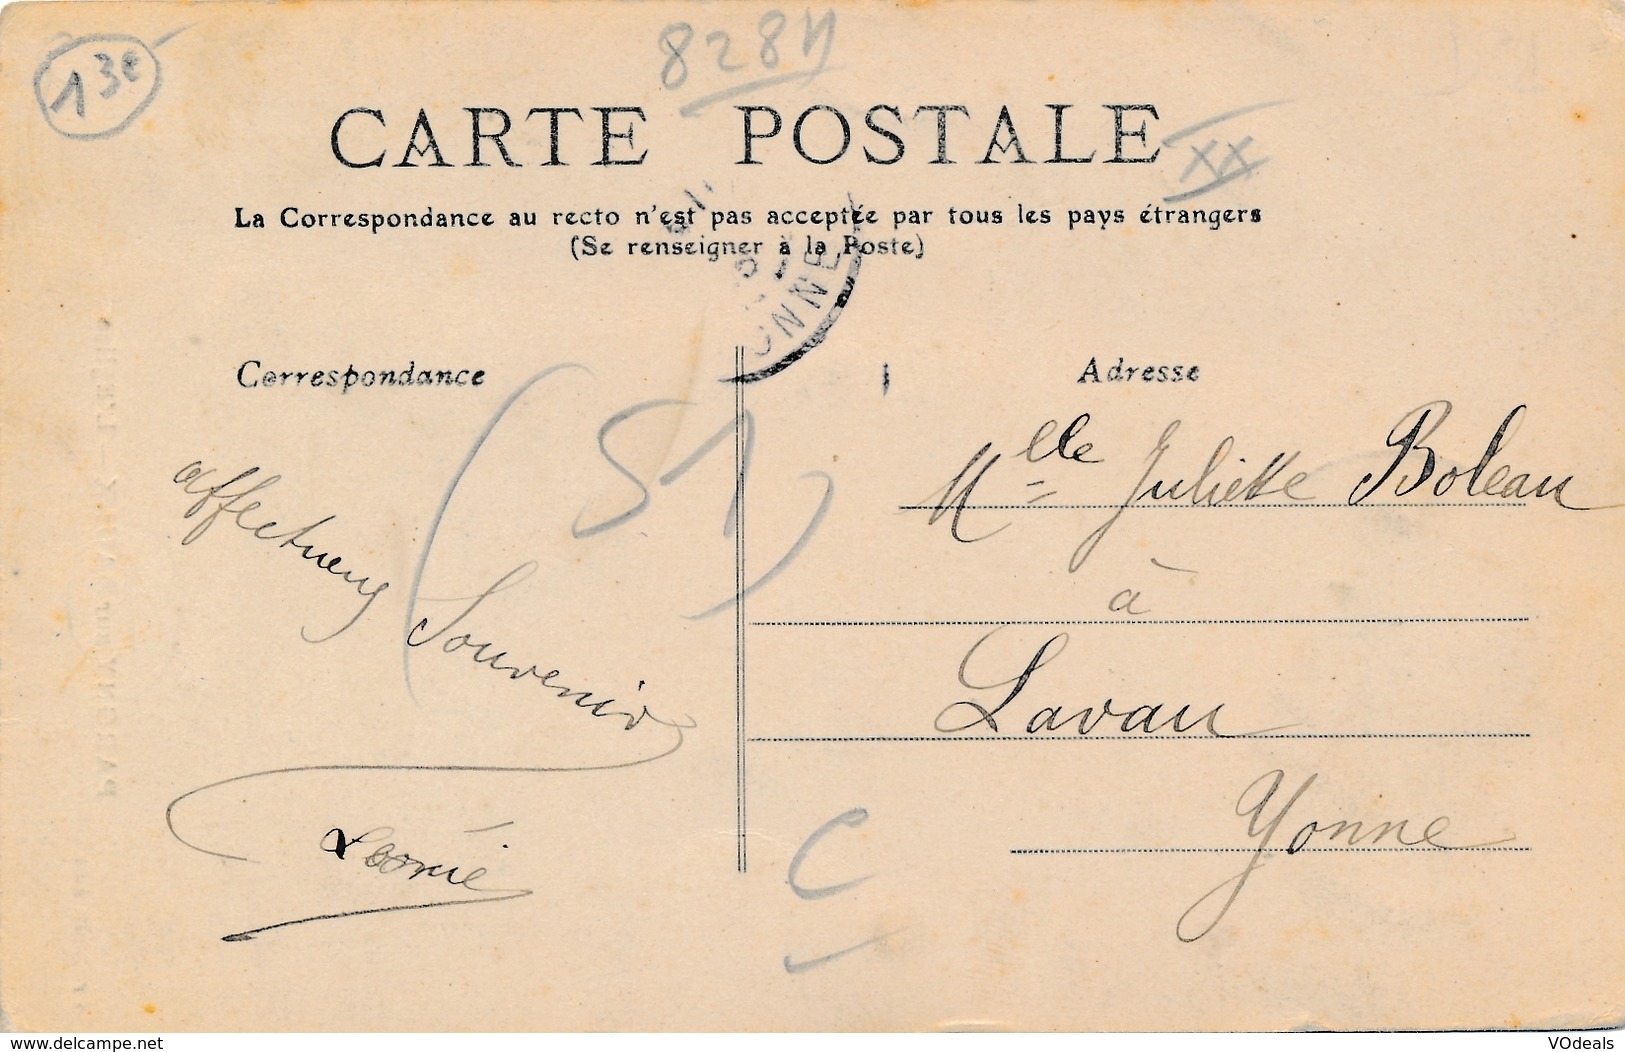 13e
828N
CARTE POSTALE
XX
La Correspondance au recto n'est pas acceptée par tous les pays étrangers
(Se renseigner à la Poste)
YONNE
Correspondance
Adresse
(51)
affectueux
Souvenir
Léonie
Mlle Juliette Boleau
à
Lavau
Yonne
C
www.delcampe.net
VOdeals